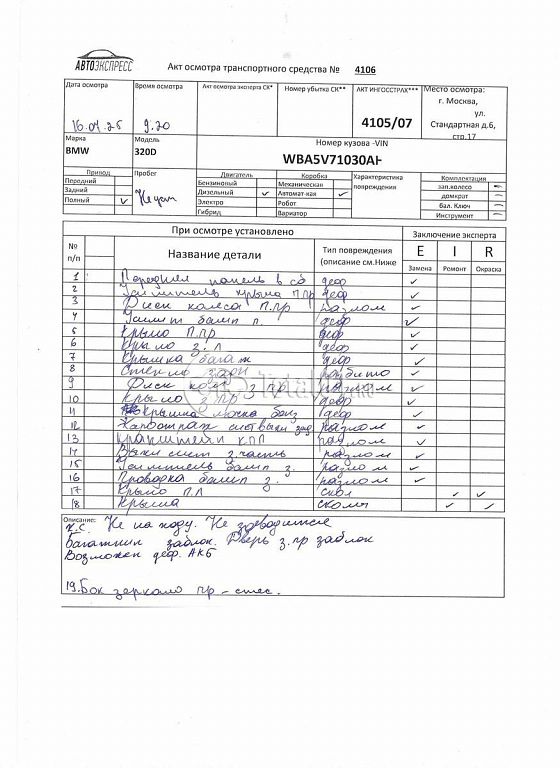 АВТОЭКСПРЕСС
Акт осмотра транспортного средства № 4106
Дата осмотра
16.04.25
Время осмотра
9:20
Акт осмотра эксперта СК*
Номер убытка СК**
АКТ ИНГОССТРАХ***
4105/07
Место осмотра:
г. Москва,
ул.
Стандартная д.6,
стр.17
Марка
BMW
Модель
320D
Номер кузова -VIN
WBA5V71030AH
Привод
Передний
Задний
Полный ✓
Пробег
Двигатель
Бензиновый
Дизельный ✓
Электро
Гибрид
Коробка
Механическая
Автомат-кая ✓
Робот
Вариатор
Характеристика
повреждения
Комплектация
зап.колесо –
домкрат –
бал. Ключ –
Инструмент –
При осмотре установлено
Заключение эксперта
№
п/п
Название детали
Тип повреждения
(описание см.Ниже
E I R
Замена Ремонт Окраска
1 Передняя панель в сб деф ✓
2 Усилитель крыла п.пр деф ✓
3 Диск колеса п.пр разлом ✓
4 Усилит бамп п. деф ✓
5 Крыло п.пр деф ✓
6 Крыло з.л деф ✓
7 Крышка багаж деф ✓
8 Стекло задн разбито ✓
9 Диск кол з пр разлом ✓
10 Крыло з пр деф ✓
11 Крышка люка бенз деф ✓
12 разлом ✓
13 КПП разлом ✓
14 з.часть разлом ✓
15 Усилитель бамп з. разлом ✓
16 Проводка бамп з. разлом ✓
17 Крыло п.л скол ✓ ✓
18 Крыша сколы ✓ ✓
Описание:
Т.С. Не на ходу. Не заводится
Багажник заблок. Дверь з.пр заблок
Возможен деф. АКБ
19. Бок зеркало пр – стес.